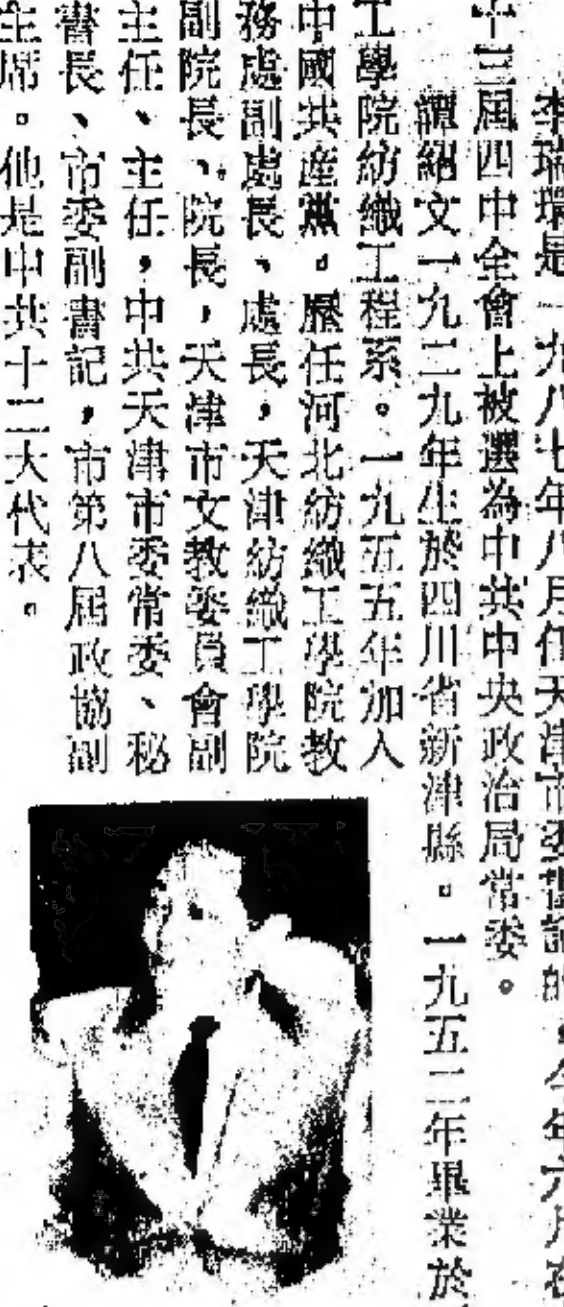 李瑞環是一九八七年八月任天津市委書記的，今年六月在
十三屆四中全會上被選為中共中央政治局常委。
譚紹文一九二九年生於四川省新津縣。一九五二年畢業於
工學院紡織工程系。一九五五年加入
中國共產黨。歷任河北紡織工學院教
務處副處長、處長，天津紡織工學院
副院長、院長，天津市文教委員會副
主任、主任，中共天津市委常委、秘
書長、市委副書記，市第八屆政協副
主席。他是中共十二大代表。